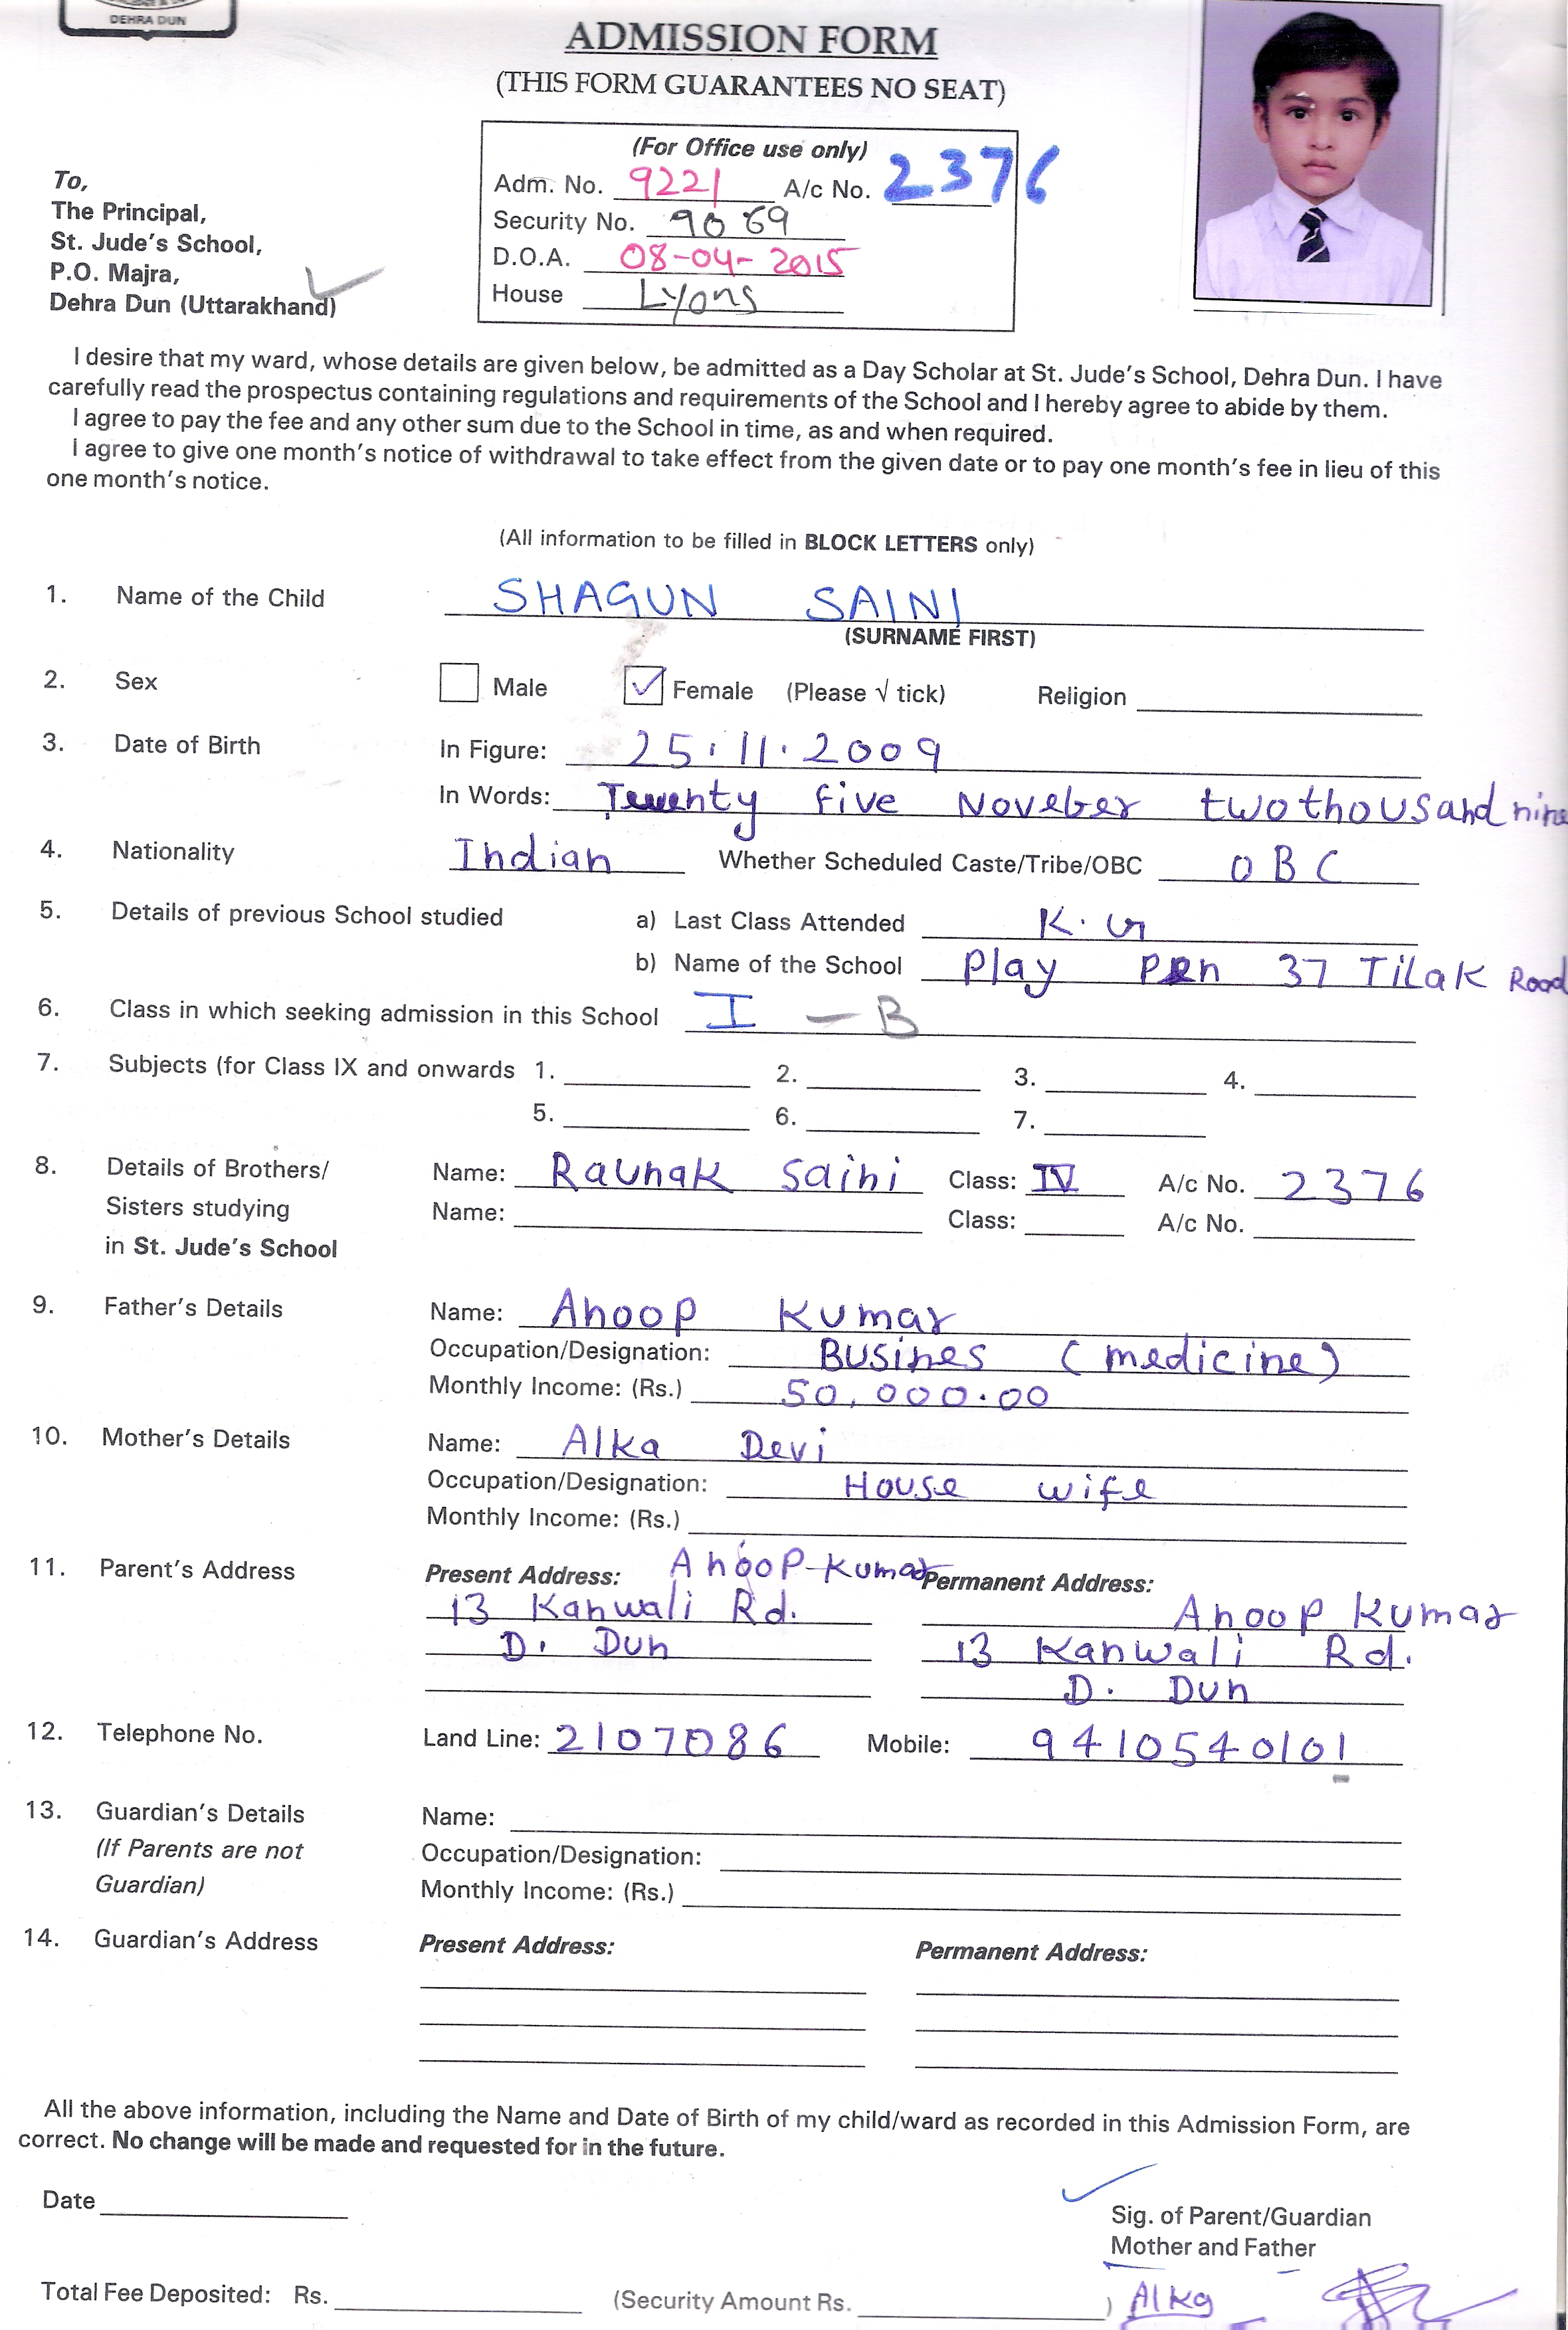 DEHRA DUN
ADMISSION FORM
(THIS FORM GUARANTEES NO SEAT)
(For Office use only)
Adm. No. 9221 A/c No. 2376
Security No. 9069
D.O.A. 08-04-2015
House Lyons
To,
The Principal,
St. Jude's School,
P.O. Majra,
Dehra Dun (Uttarakhand)
I desire that my ward, whose details are given below, be admitted as a Day Scholar at St. Jude's School, Dehra Dun. I have
carefully read the prospectus containing regulations and requirements of the School and I hereby agree to abide by them.
I agree to pay the fee and any other sum due to the School in time, as and when required.
I agree to give one month's notice of withdrawal to take effect from the given date or to pay one month's fee in lieu of this
one month's notice.
(All information to be filled in BLOCK LETTERS only)
1. Name of the Child SHAGUN SAINI
(SURNAME FIRST)
2. Sex Male Female (Please √ tick) Religion
3. Date of Birth In Figure: 25.11.2009
In Words: Twenty five Noveber two thousand nine
4. Nationality Indian Whether Scheduled Caste/Tribe/OBC OBC
5. Details of previous School studied a) Last Class Attended K.G
b) Name of the School Play Pen 37 Tilak Road
6. Class in which seeking admission in this School I - B
7. Subjects (for Class IX and onwards 1. 2. 3. 4.
5. 6. 7.
8. Details of Brothers/ Name: Raunak Saini Class: IV A/c No. 2376
Sisters studying Name: Class: A/c No.
in St. Jude's School
9. Father's Details Name: Anoop Kumar
Occupation/Designation: Busines (medicine)
Monthly Income: (Rs.) 50,000.00
10. Mother's Details Name: Alka Devi
Occupation/Designation: House wife
Monthly Income: (Rs.)
11. Parent's Address Present Address: Anoop Kumar Permanent Address:
13 Kanwali Rd. Anoop Kumar
D. Dun 13 Kanwali Rd.
D. Dun
12. Telephone No. Land Line: 2107086 Mobile: 9410540101
13. Guardian's Details Name:
(If Parents are not Occupation/Designation:
Guardian) Monthly Income: (Rs.)
14. Guardian's Address Present Address: Permanent Address:
All the above information, including the Name and Date of Birth of my child/ward as recorded in this Admission Form, are
correct. No change will be made and requested for in the future.
Date
Sig. of Parent/Guardian
Mother and Father
Total Fee Deposited: Rs. (Security Amount Rs. ) Alka